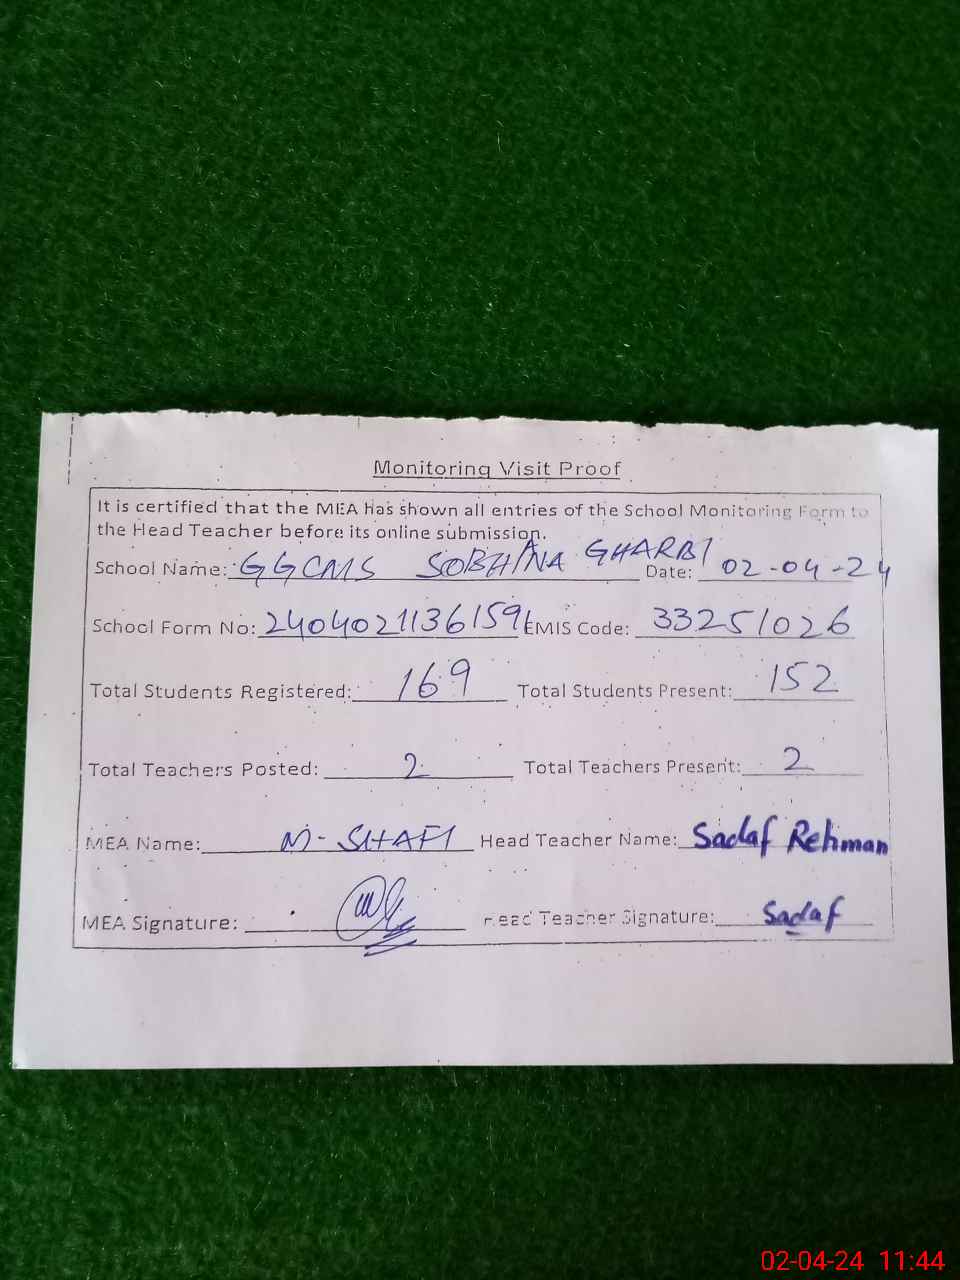 Monitoring Visit Proof
It is certified that the MEA has shown all entries of the School Monitoring Form to
the Head Teacher before its online submission.
School Name: GGCMS SOBHANA GHARBI Date: 02-04-24
School Form No: 24040211361596 EMIS Code: 33251026
Total Students Registered: 169 Total Students Present: 152
Total Teachers Posted: 2 Total Teachers Present: 2
MEA Name: M-SHAFI Head Teacher Name: Sadaf Rehman
MEA Signature: Head Teacher Signature: Sadaf
02-04-24 11:44